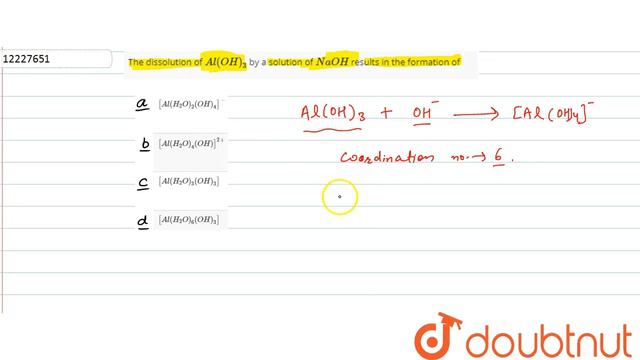 12227651
The dissolution of Al(OH)₃ by a solution of NaOH results in the formation of
a [Al(H₂O)₂(OH)₄]⁻
b [Al(H₂O)₄(OH)]²⁺
c [Al(H₂O)₃(OH)₃]
d [Al(H₂O)₆(OH)₃]
Al(OH)₃ + OH⁻ ⟶ [Al(OH)₄]⁻
Coordination no. → 6.
doubtnut